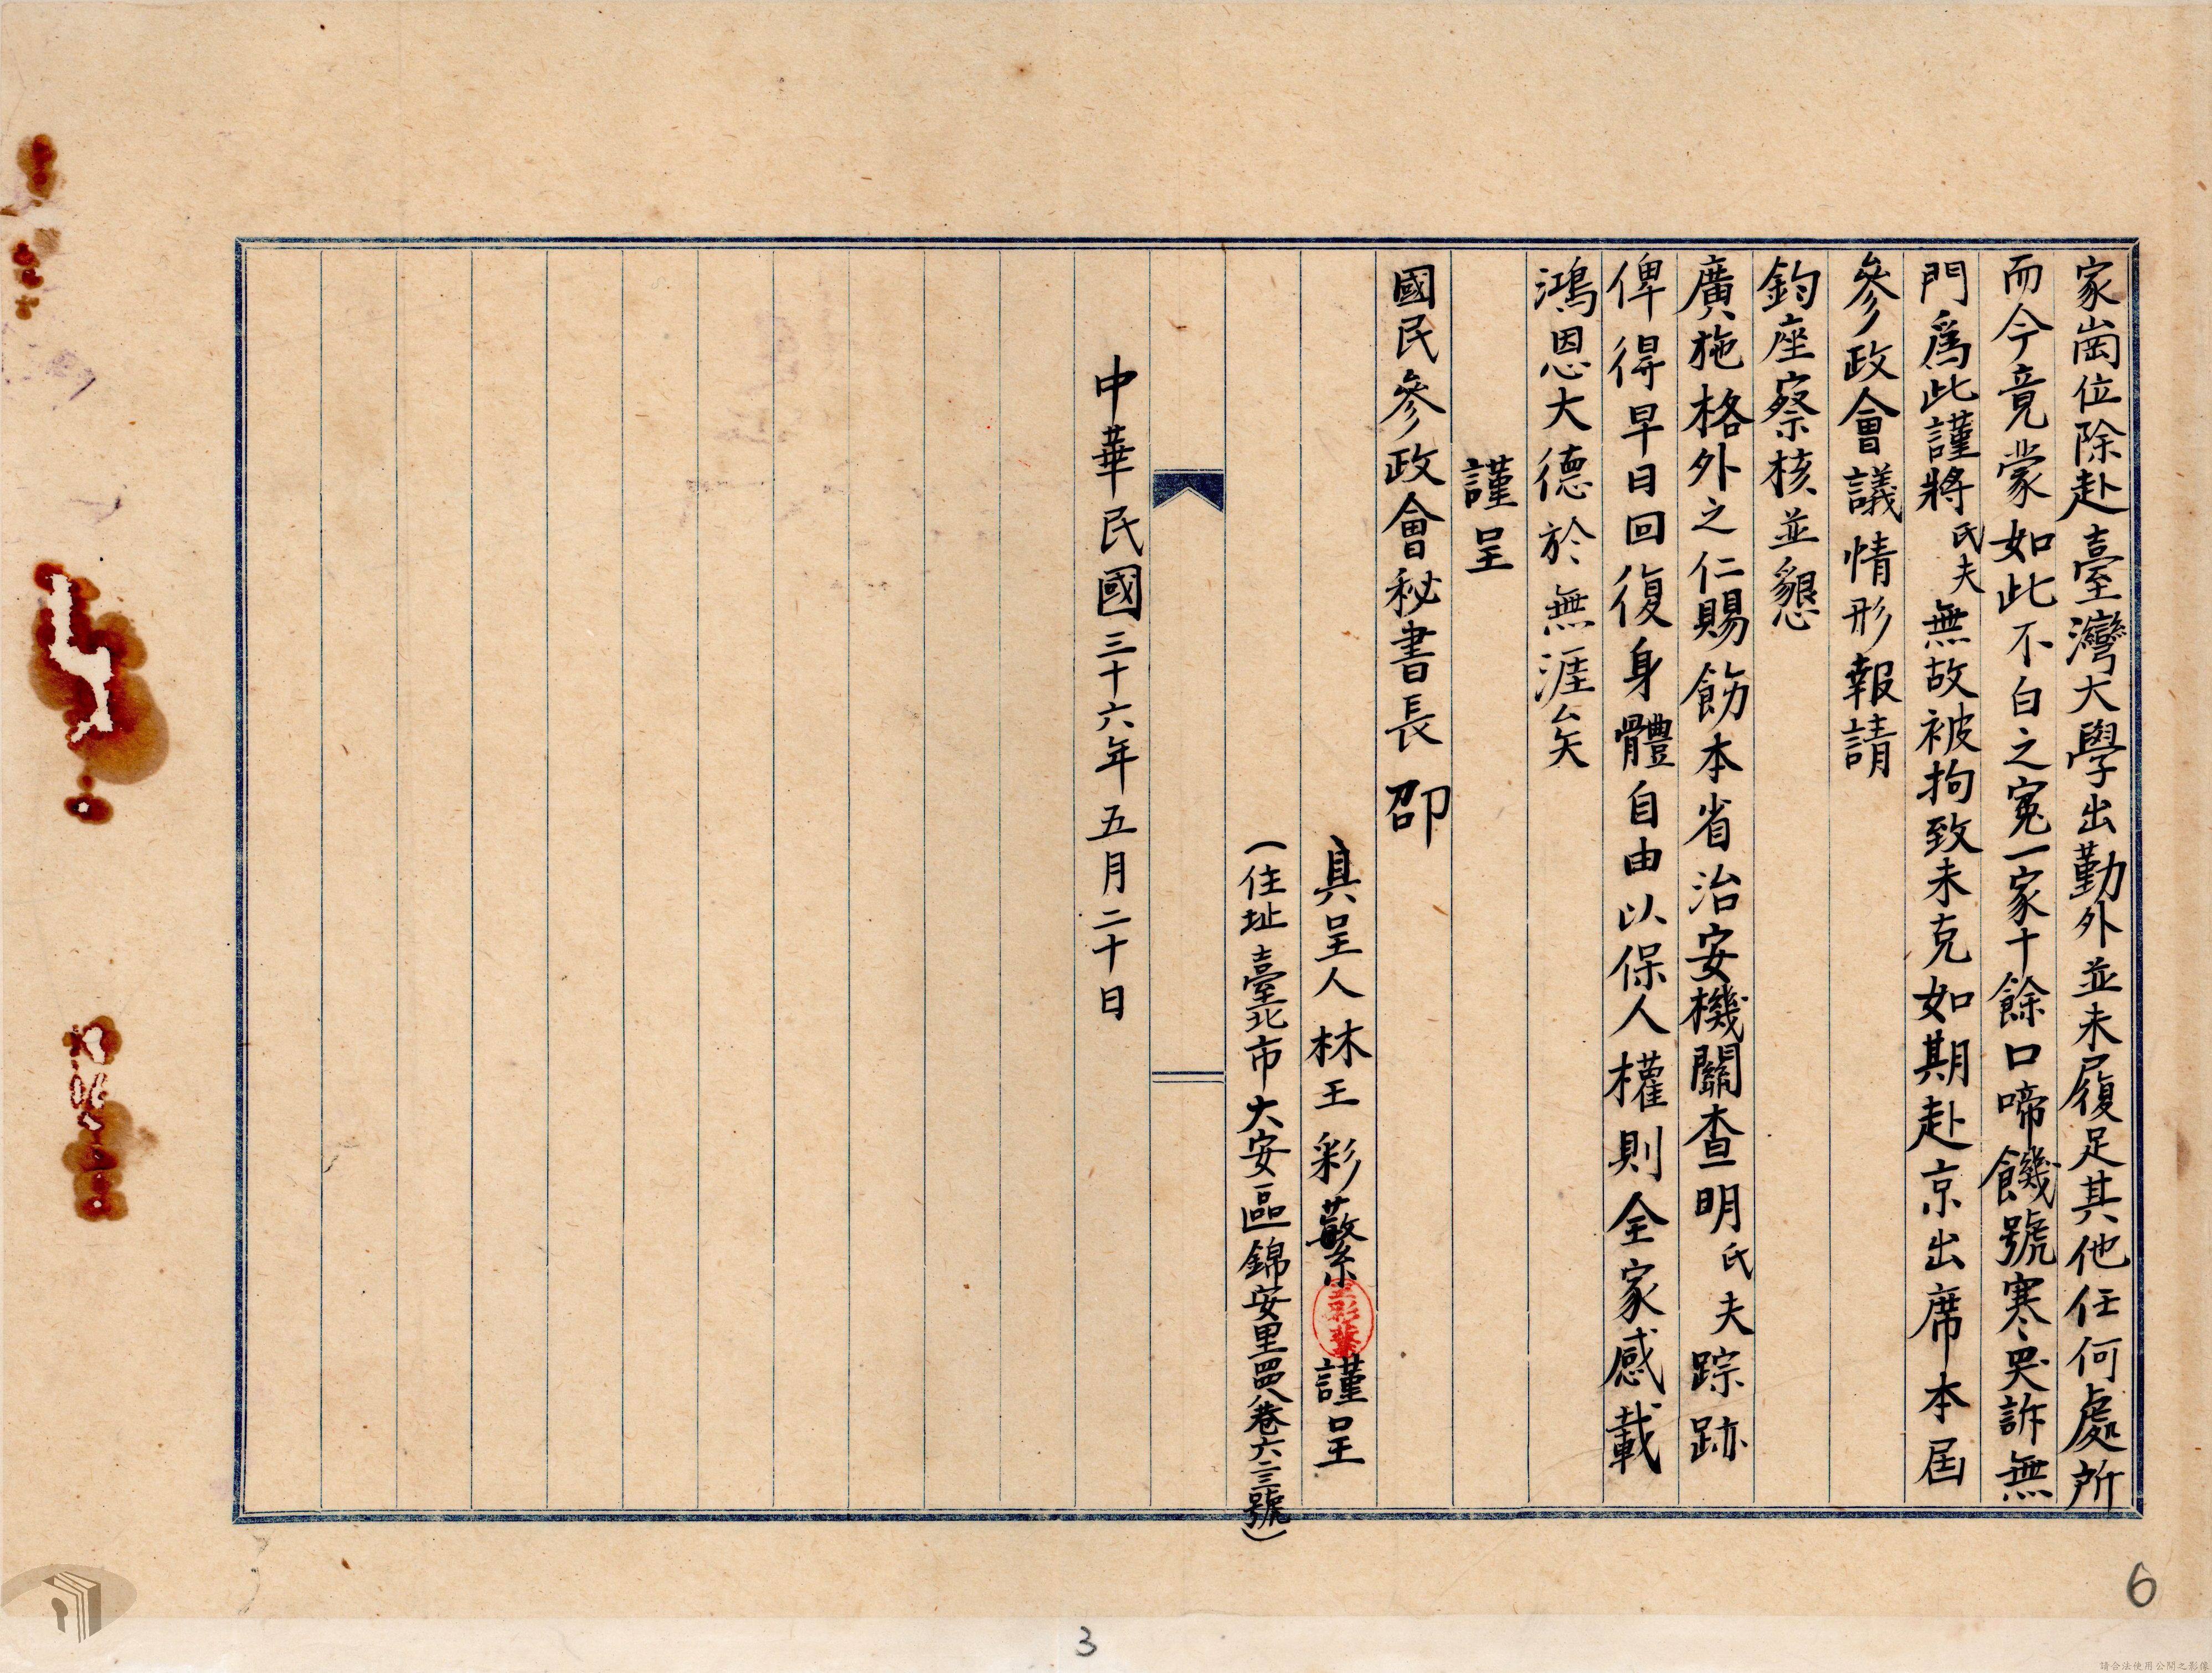 家崗位除赴臺灣大學出勤外並未履足其他任何處所
而今竟蒙如此不白之冤一家十餘口啼饑號寒哭訴無
門爲此謹將氏夫無故被拘致未克如期赴京出席本屆
參政會議情形報請
鈞座察核並懇
廣施格外之仁賜飭本省治安機關查明氏夫踪跡
俾得早日回復身體自由以保人權則全家感載
鴻恩大德於無涯矣
謹呈
國民參政會秘書長 邵
具呈人林王彩蘩謹呈
(住址臺北市大安區錦安里四八巷六二號)
中華民國三十六年五月二十日
6
3
請合法使用公開之影像